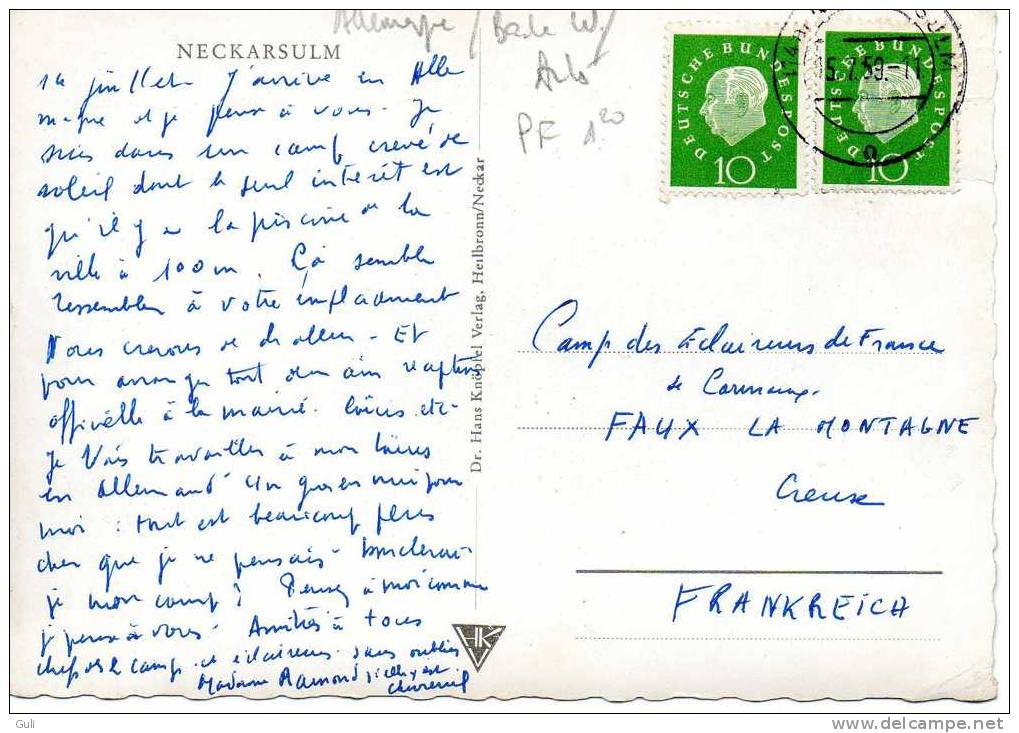 Allemagne / Bade W/
NECKARSULM
Arlo
PF 1 20
DEUTSCHE BUNDESPOST
10
DEUTSCHE BUNDESPOST
10
15.7.59.-11
14 juillet J'arrive en Alle
magne et je pense à vous. Je
suis dans un camp crevé de
soleil dont le seul intérêt est
qu'il y a la piscine de la
ville à 100m. Çà semble
ressembler à votre emplacement
Nous crevons de chaleur - Et
pour arranger tout demain réception
officielle à la mairie. etc-
Je vais travailler à mon
en Allemand Un gros ennui pour
moi : tout est beaucoup plus
cher que je ne pensais
je mon camp ? Pensez à moi comme
je pense à vous - Amitiés à tous
chefs de camp et éclaireurs sans oublier
Madame Ramond si elle y est
Dr. Hans Knöpfel Verlag, Heilbronn/Neckar
HK
Camp des Eclaireurs de France
de Carmaux.
FAUX LA MONTAGNE
Creuse
FRANKREICH
Guli
www.delcampe.net